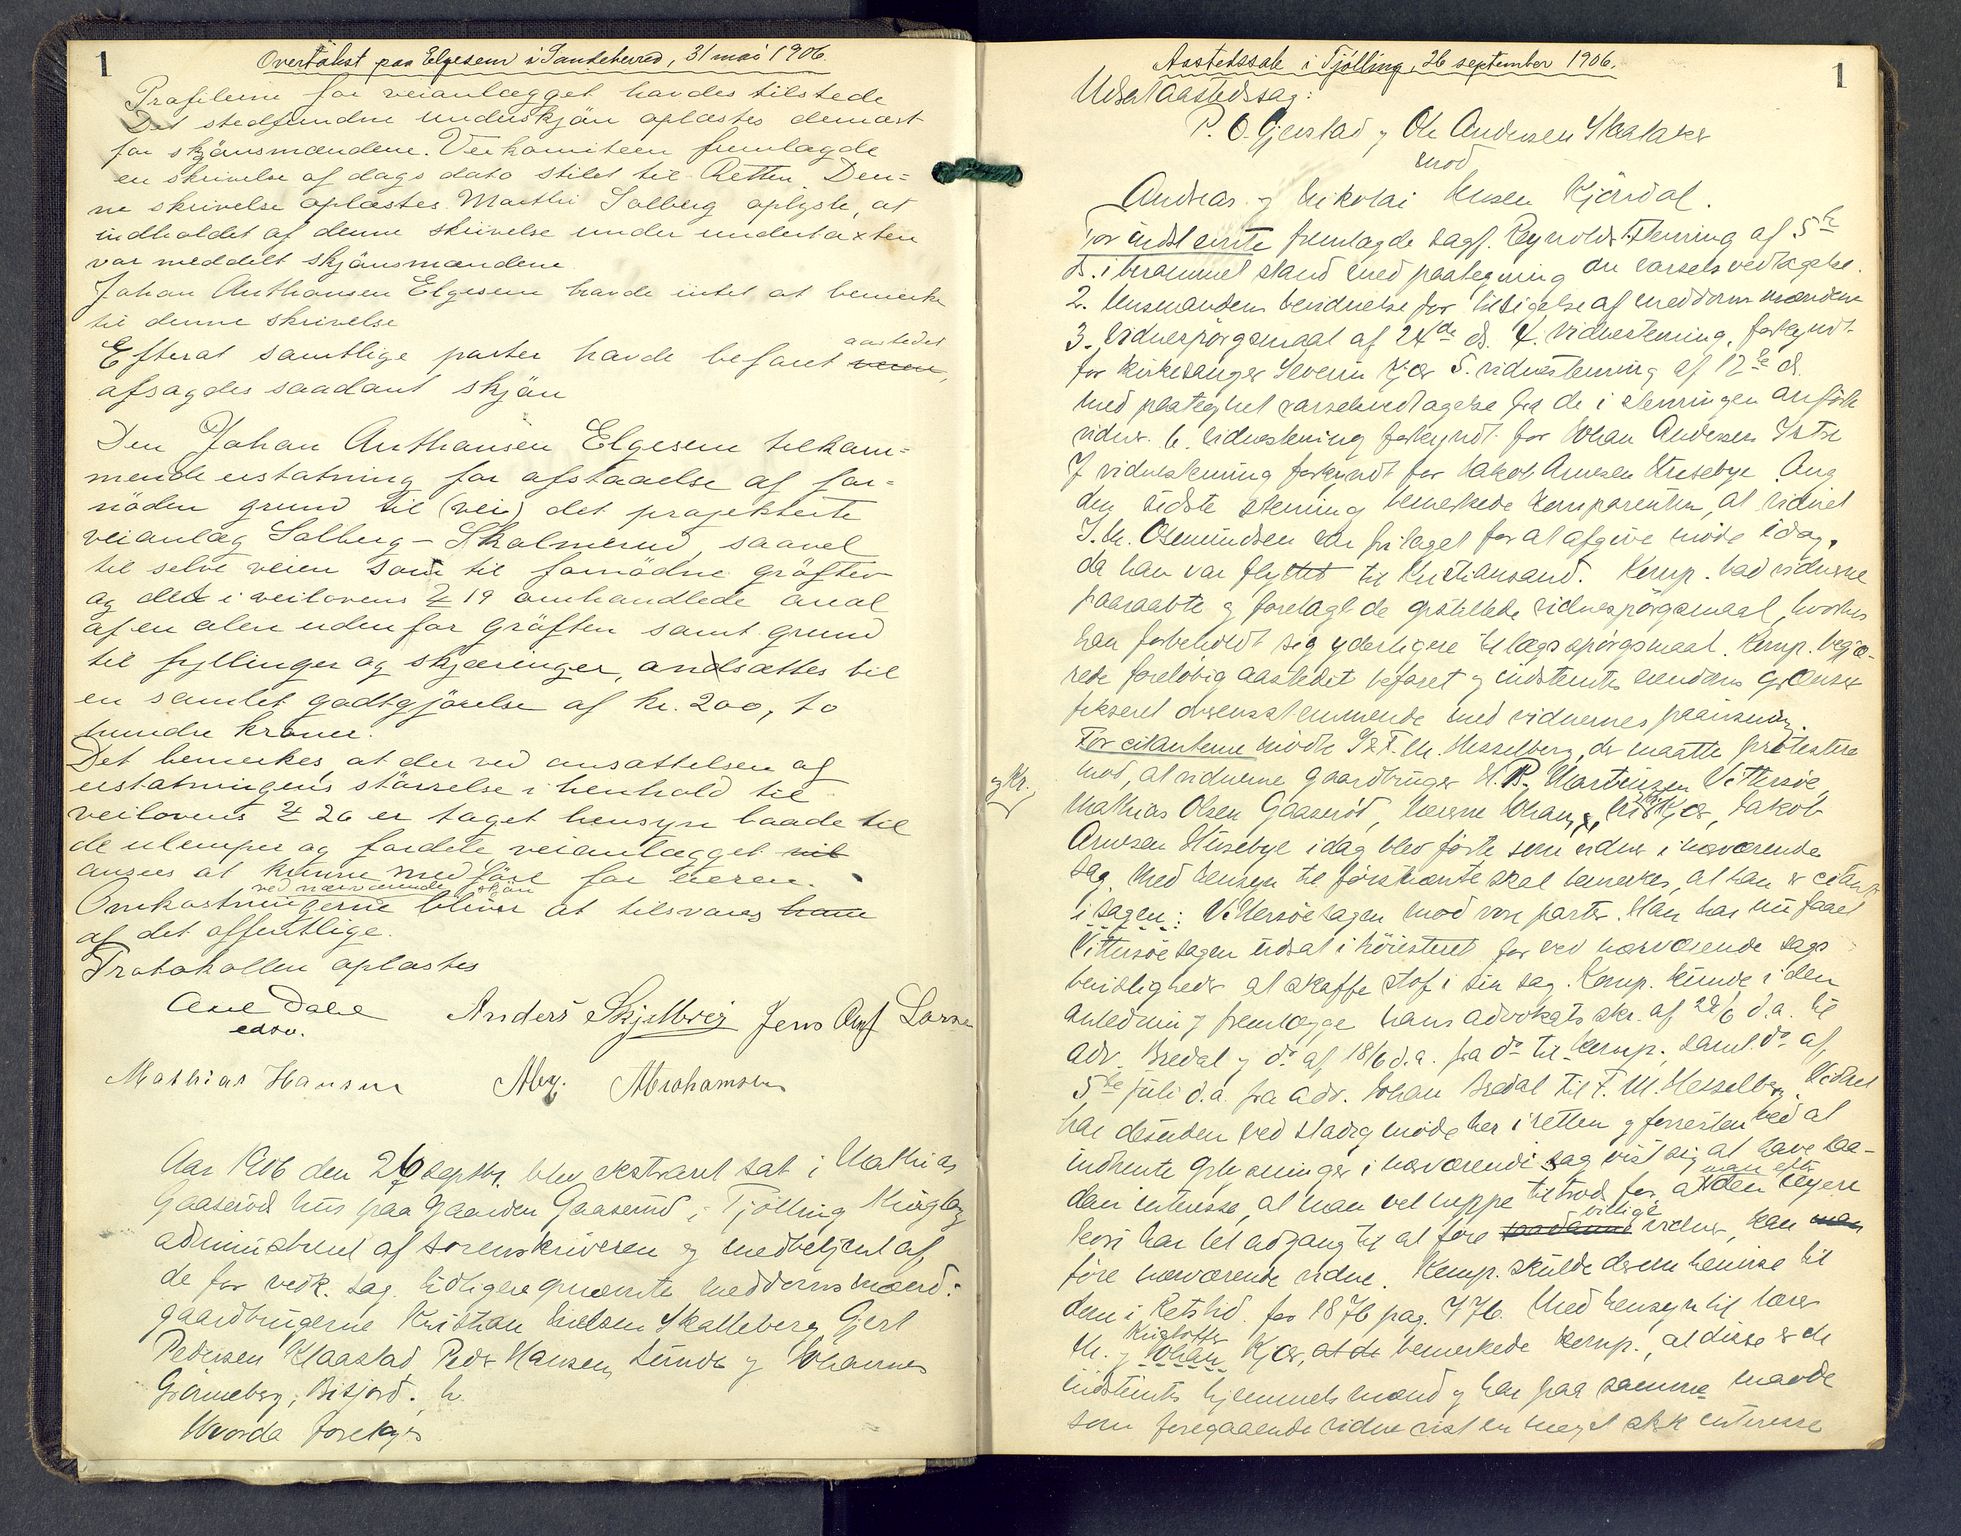 1
Overtakst paa Elgesem i Sandeherred, 31 mai 1906.
Profilerne for veianlægget havdes tilstede
Det stedfundne underskjøn oplæstes dernæst
for skjønsmændene. Veikomiteen fremlagde
en skrivelse af dags dato stilet til Retten. Den-
ne skrivelse oplæstes. Marthi Solberg oplyste, at
indholdet af denne skrivelse under undertaxten
var meddelt skjønsmændene.
Johan Anthonsen Elgesem havde intet at bemerke
til denne skrivelse
Efterat samtlige parter havde befaret aastedet
afsagdes saadant skjøn
Den Johan Anthonsen Elgesem tilkom-
mende erstatning for afstaaelse af for-
nøden grund til (vei) det projekterte
veianlæg Solberg - Skolmerud, saavel
til selve veien som til fornødne grøfter
og det i veilovens § 19 omhandlede areal
af en alen udenfor grøften samt grund
til fyllinger og skjæringer, ansættes til
en samlet godtgjørelse af kr. 200, to
hundre kroner.
Det bemerkes, at der ved ansættelsen af
erstatningens størrelse i henhold til
veilovens § 26 er taget hensyn baade til
de ulemper og fordele veianlægget
ansees at kunne medføre for eieren.
ved nærværende skjøn
Omkostningerne bliver at tilsvares
af det offentlige.
Protokollen oplæstes
Axel Dahl
edsv.
Anders Skjelbreid Jens Olaf Larsen
Mathias Hansen Alex. Abrahamsen
Aar 1906 den 26 septbr. blev ekstraret sat i Mathias
Gaaserøds hus paa gaarden Gaaserød i Tjølling thinglag
administreret af sorenskriveren og medbetjent af
de for vedk. sag tidligere opnævnte meddomsmænd:
gaardbrugerne Kristian Nielsen Skalleberg, Gjert
Pedersen Klaastad, Peder Hansen Lunde og Johannes
Grønneberg, Bisjord.
Hvorda foretoges
1
Aastedssak i Tjølling, 26 september 1906.
Udsat aastedssag:
P. O. Gjerstad og Ole Andersen Skataker
mod
Andreas og Nikolai Olsen Kjørdal.
For indstevnte fremlagde sagf. Reynolds stevning af 5te
ds. i berammet stand med paategning om varselsvedtagelse.
2. lensmandens bevidnelse for tilsigelse af meddomsmændene
3. vidnespørgsmaal af 24de ds. 4. vidnestevning, forkyndt
for kirkesanger Severin Kjær 5. vidnestevning af 12te ds.
med paategnet varselsvedtagelse fra de i stevningen anførte
vidner. 6. vidnestevning forkyndt for Johan Andersen Istre
7 vidnestevning forkyndt for Jakob Arnesen Husebye. Ang
den sidste stevning bemerkede komparenten, at vidnet
I. M. Osmundsen var fritaget for at afgive møde idag,
da han var flyttet til Kristiansand. Komp. bad vidnerne
paaraabte og forelagt de opstillede vidnespørgsmaal, hvorhos
han forbeholdt sig yderligere tillægsspørgsmaal. Komp. begjæ-
rede foreløbig aastedet befaret og indstevnte eiendoms grænser
fikseret overensstemmende med vidnernes paavisning.
For citanterne mødte F. M. Hesselberg, der maatte protestere
mod, at vidnerne gaardbruger H. B. Martinsen Vittersøe,
og Kr.
Mathias Olsen Gaaserød, lærerne Johan Kjær, Jakob
Arnesen Husebye idag blev førte som vidner i nærværende
sag. Med hensyn til førstnævnte skal bemerkes, at han er citant
i sagen: Vittersøesagen mod vore parter. Han har nu faaet
Vittersøesagen udsat i høiesteret for ved nærværende sags
bevisligheder at skaffe stof i sin sag. Komp. kunde i den
anledning fremlægge hans advokats skr. af 28/6 d.a. til
adv. Bredal og do af 18/6 d.a. fra do til komp., samt do af
5te juli d.a. fra adv. Johan Bredal til F. M. Hesselberg. Vidnet
har desuden ved stadig møde her i retten og forresten ved at
indhente oplysninger i nærværende sag vist sig at have saa-
dan interesse, at man vel neppe tiltrods for, at man efter den nyere
lov har let adgang til at føre villige vidner, kan
føre nærværende vidne. Komp. skulde derom henvise til
dom i Retstid. for 1876 pag. 776. Med hensyn til lærer
M. og Kristoffer Johan Kjær, bemerkede komp., at disse er de
indstevnte hjemmelsmænd og har paa samme maade
som foregaaende vidne vist en meget sterk interesse